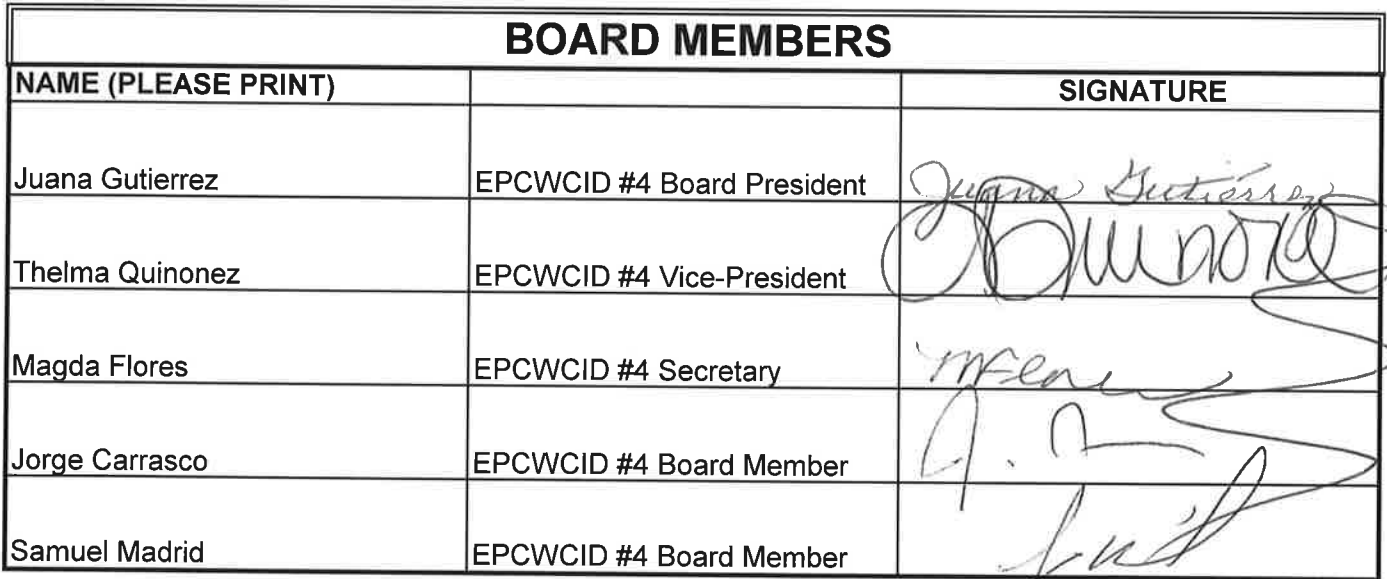 BOARD MEMBERS
NAME (PLEASE PRINT) SIGNATURE
Juana Gutierrez EPCWCID #4 Board President Juana Gutierrez
Thelma Quinonez EPCWCID #4 Vice-President
Magda Flores EPCWCID #4 Secretary
Jorge Carrasco EPCWCID #4 Board Member
Samuel Madrid EPCWCID #4 Board Member